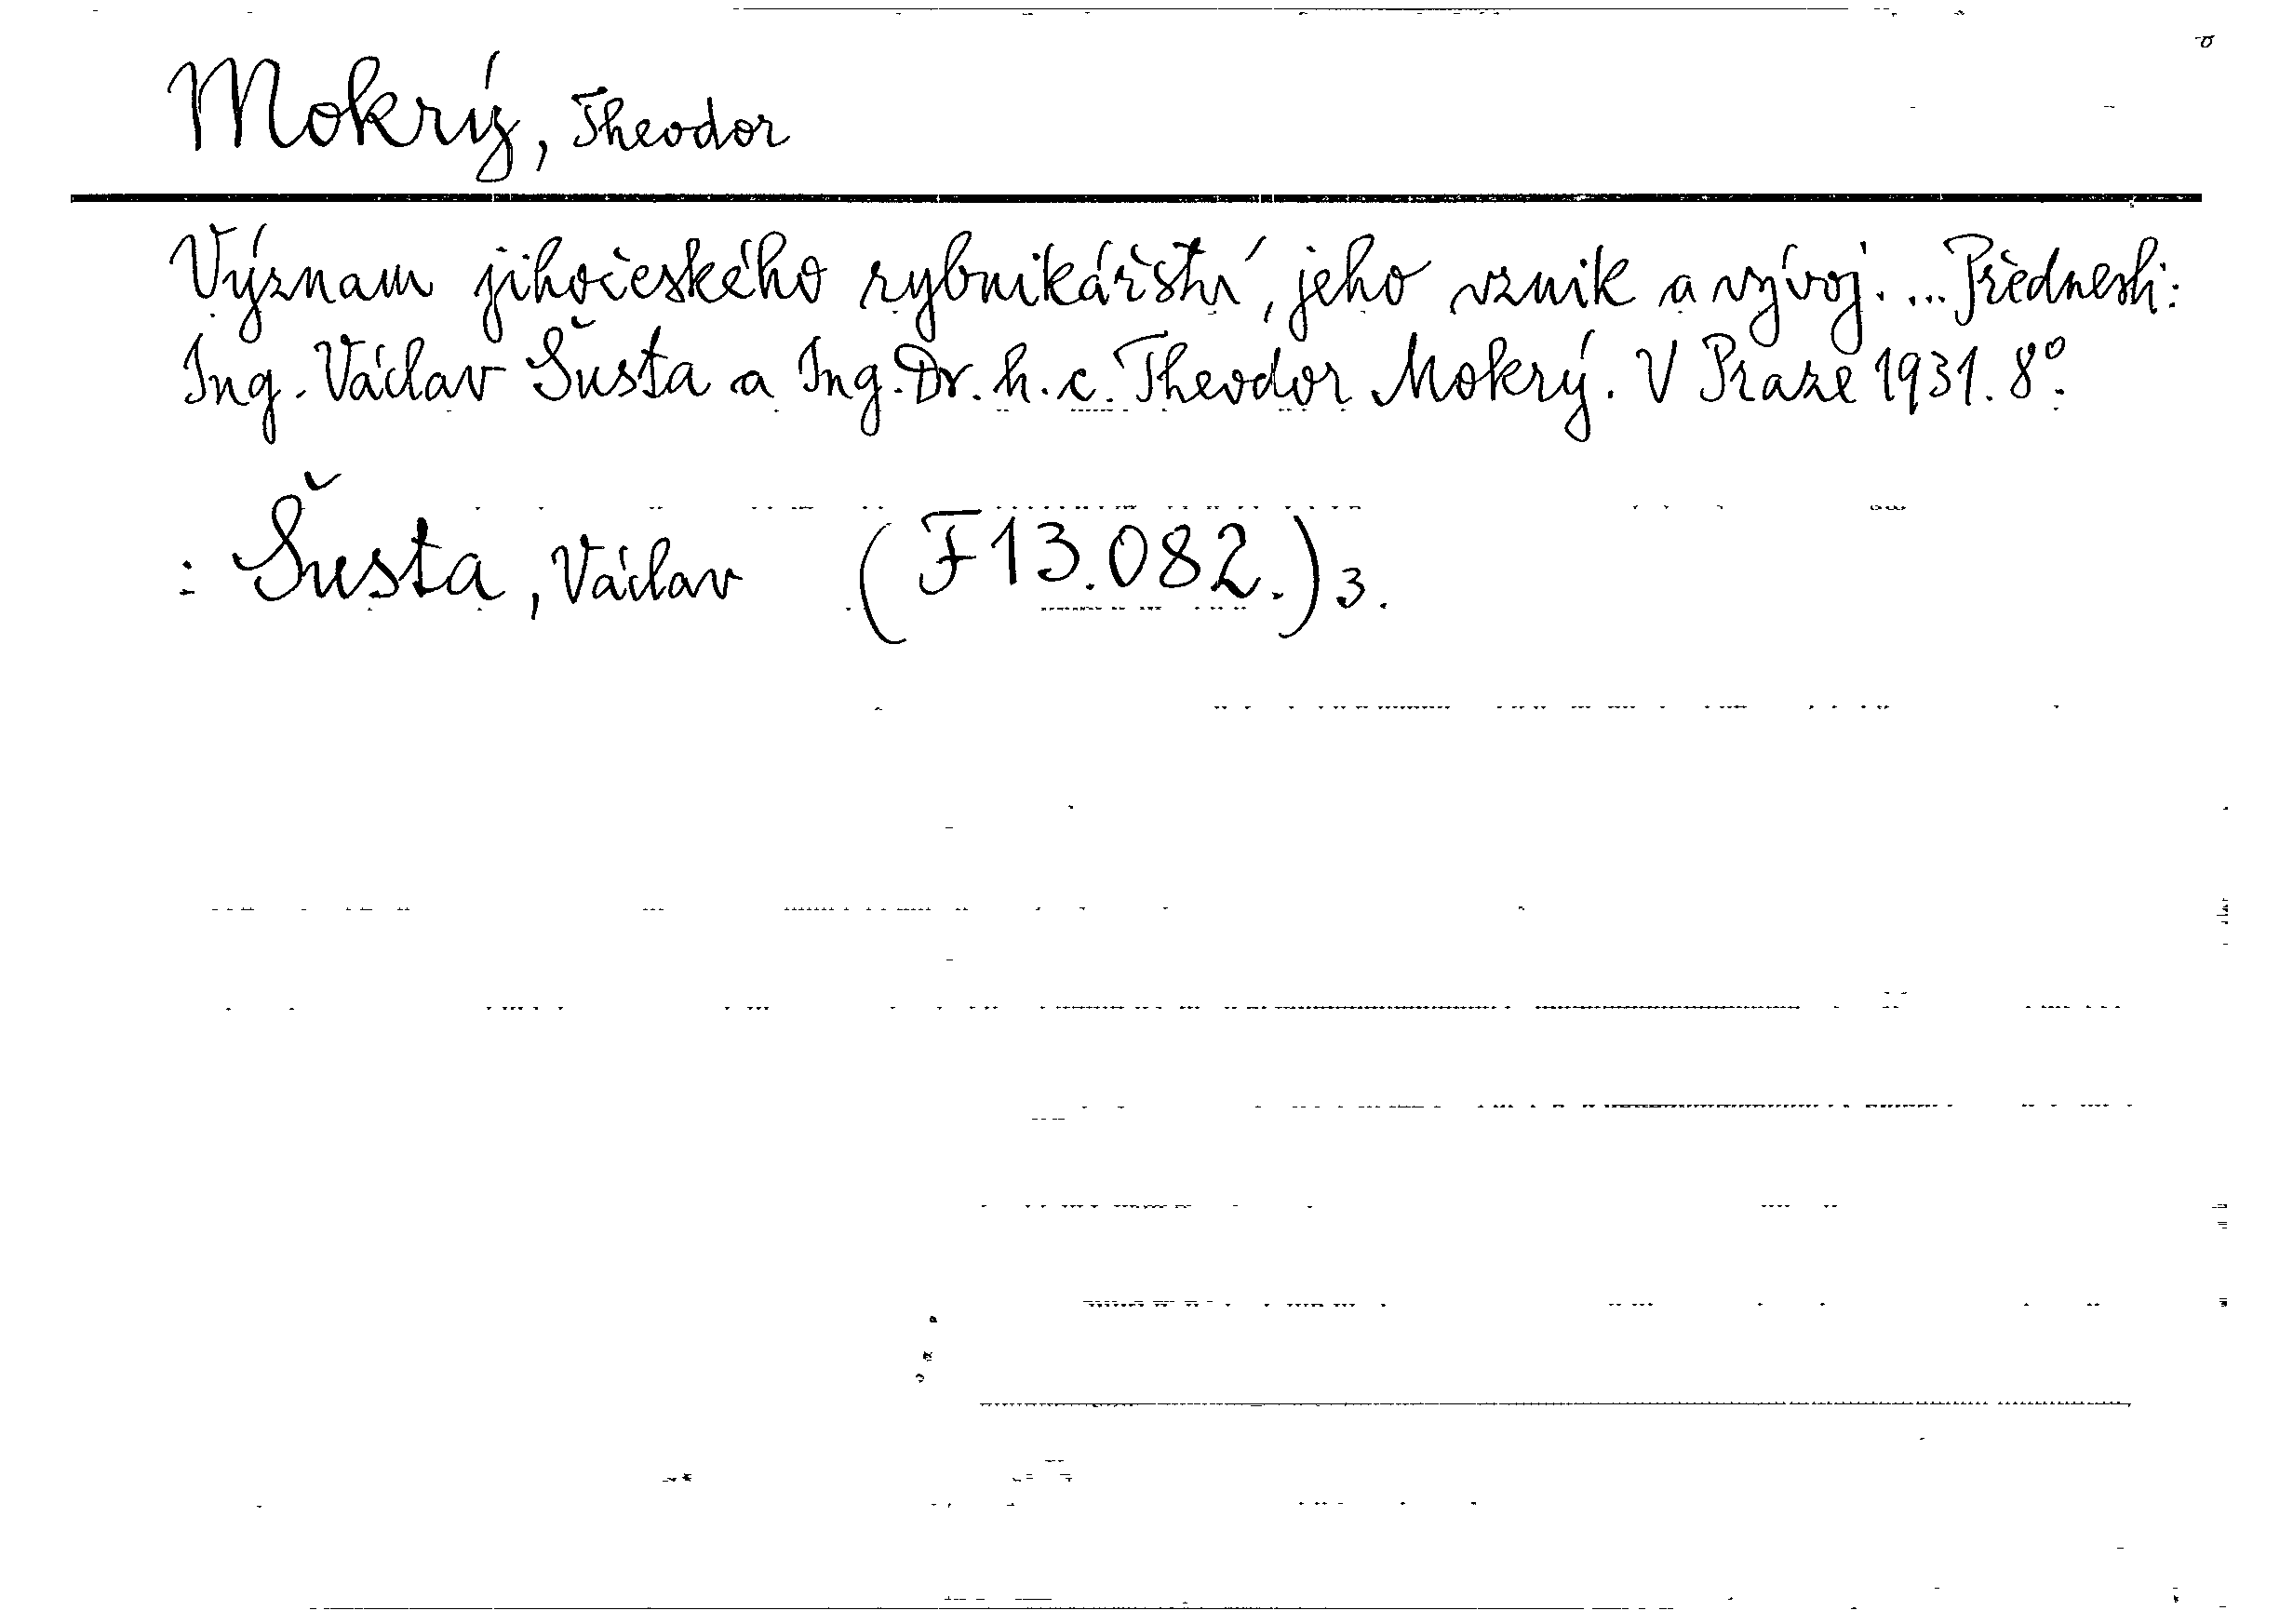 Mokrý, Theodor
Význam jihočeského rybnikářství, jeho vznik a vývoj. ... Přednesli:
Ing. Václav Šusta a Ing. Dr. h. c. Theodor Mokrý. V Praze 1931. 8°.
: Šusta, Václav (F13.082.)3.